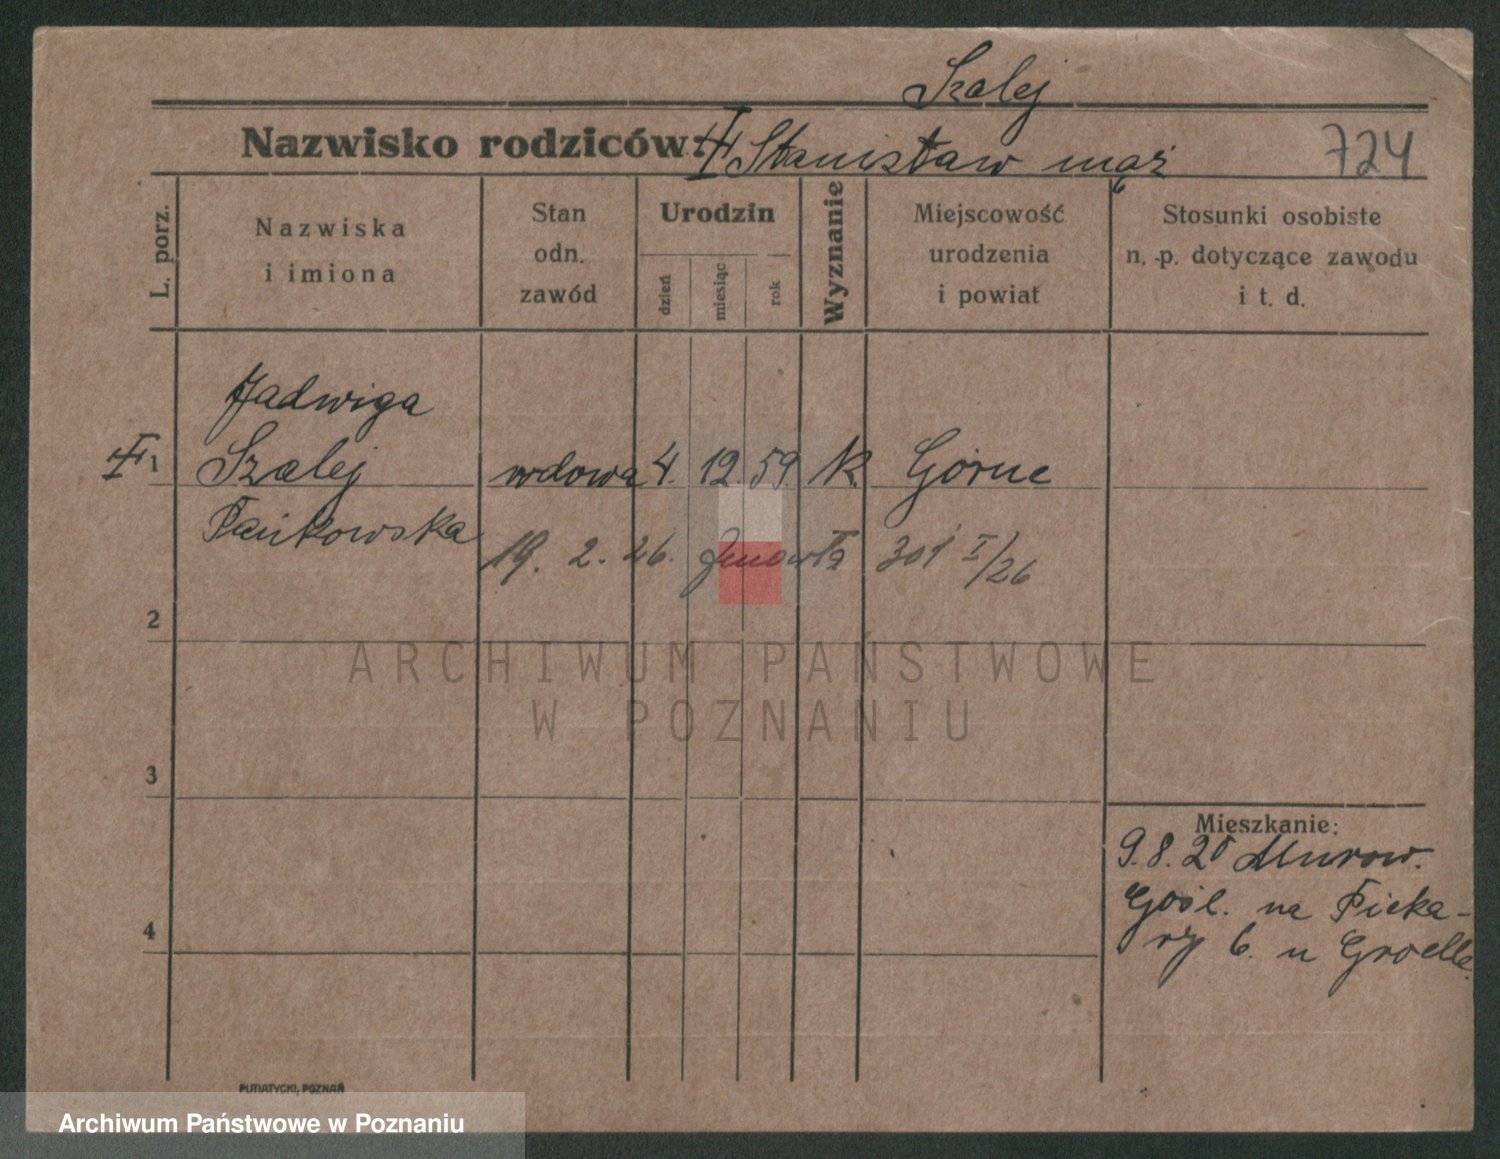 Szalej
Nazwisko rodziców: Stanisław mąż 724
L. porz.
Nazwiska
i imiona
Stan
odn.
zawód
Urodzin
dzień
miesiąc
rok
Wyznanie
Miejscowość
urodzenia
i powiat
Stosunki osobiste
n. p. dotyczące zawodu
i t. d.
Jadwiga
1 Szalej wdowa 4. 12. 59. k. Górne
Pańkowska
19. 2. 26. zmarła 301 I/26
2
3
4
Mieszkanie:
9.8.20 Murow.
Gośl. na Pieka-
ry 6. u
PUTIATYCKI, POZNAŃ
ARCHIWUM PAŃSTWOWE
W POZNANIU
Archiwum Państwowe w Poznaniu